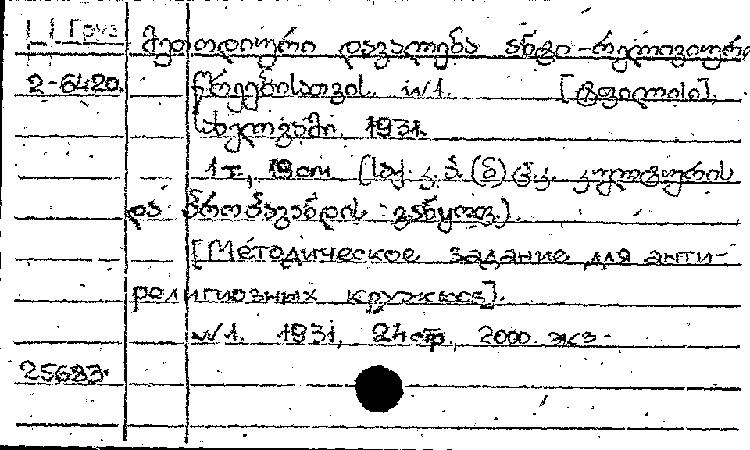 Груз
მეთოდიური დავალება ანტი-რელიგიური
2-6420.
წრეებისათვის. №1. [ტფილისი].
სახელგამი, 1931.
1 т., 19 cm (საქ. კ. პ. (ბ) ც. კ. კულტურის
და პროპაგანდის განყოფ.).
[Методическое задание для анти-
религиозных кружков].
№1. 1931, 24 стр., 2000 экз.
25683.